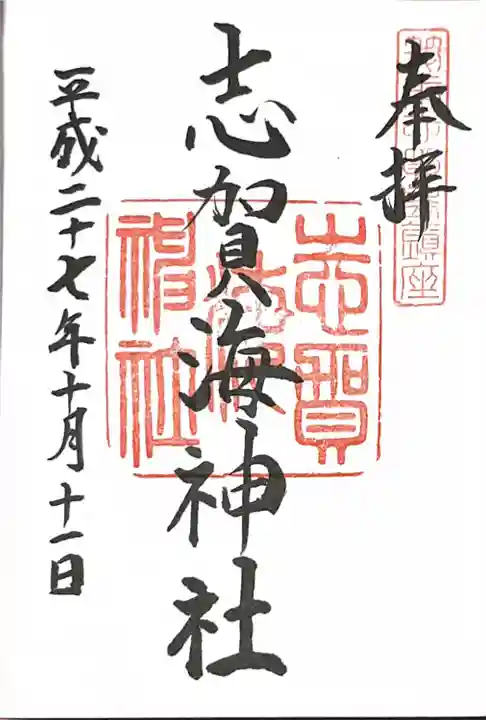 奉拝
志賀海神社
志賀海神社
平成二十七年十月十一日